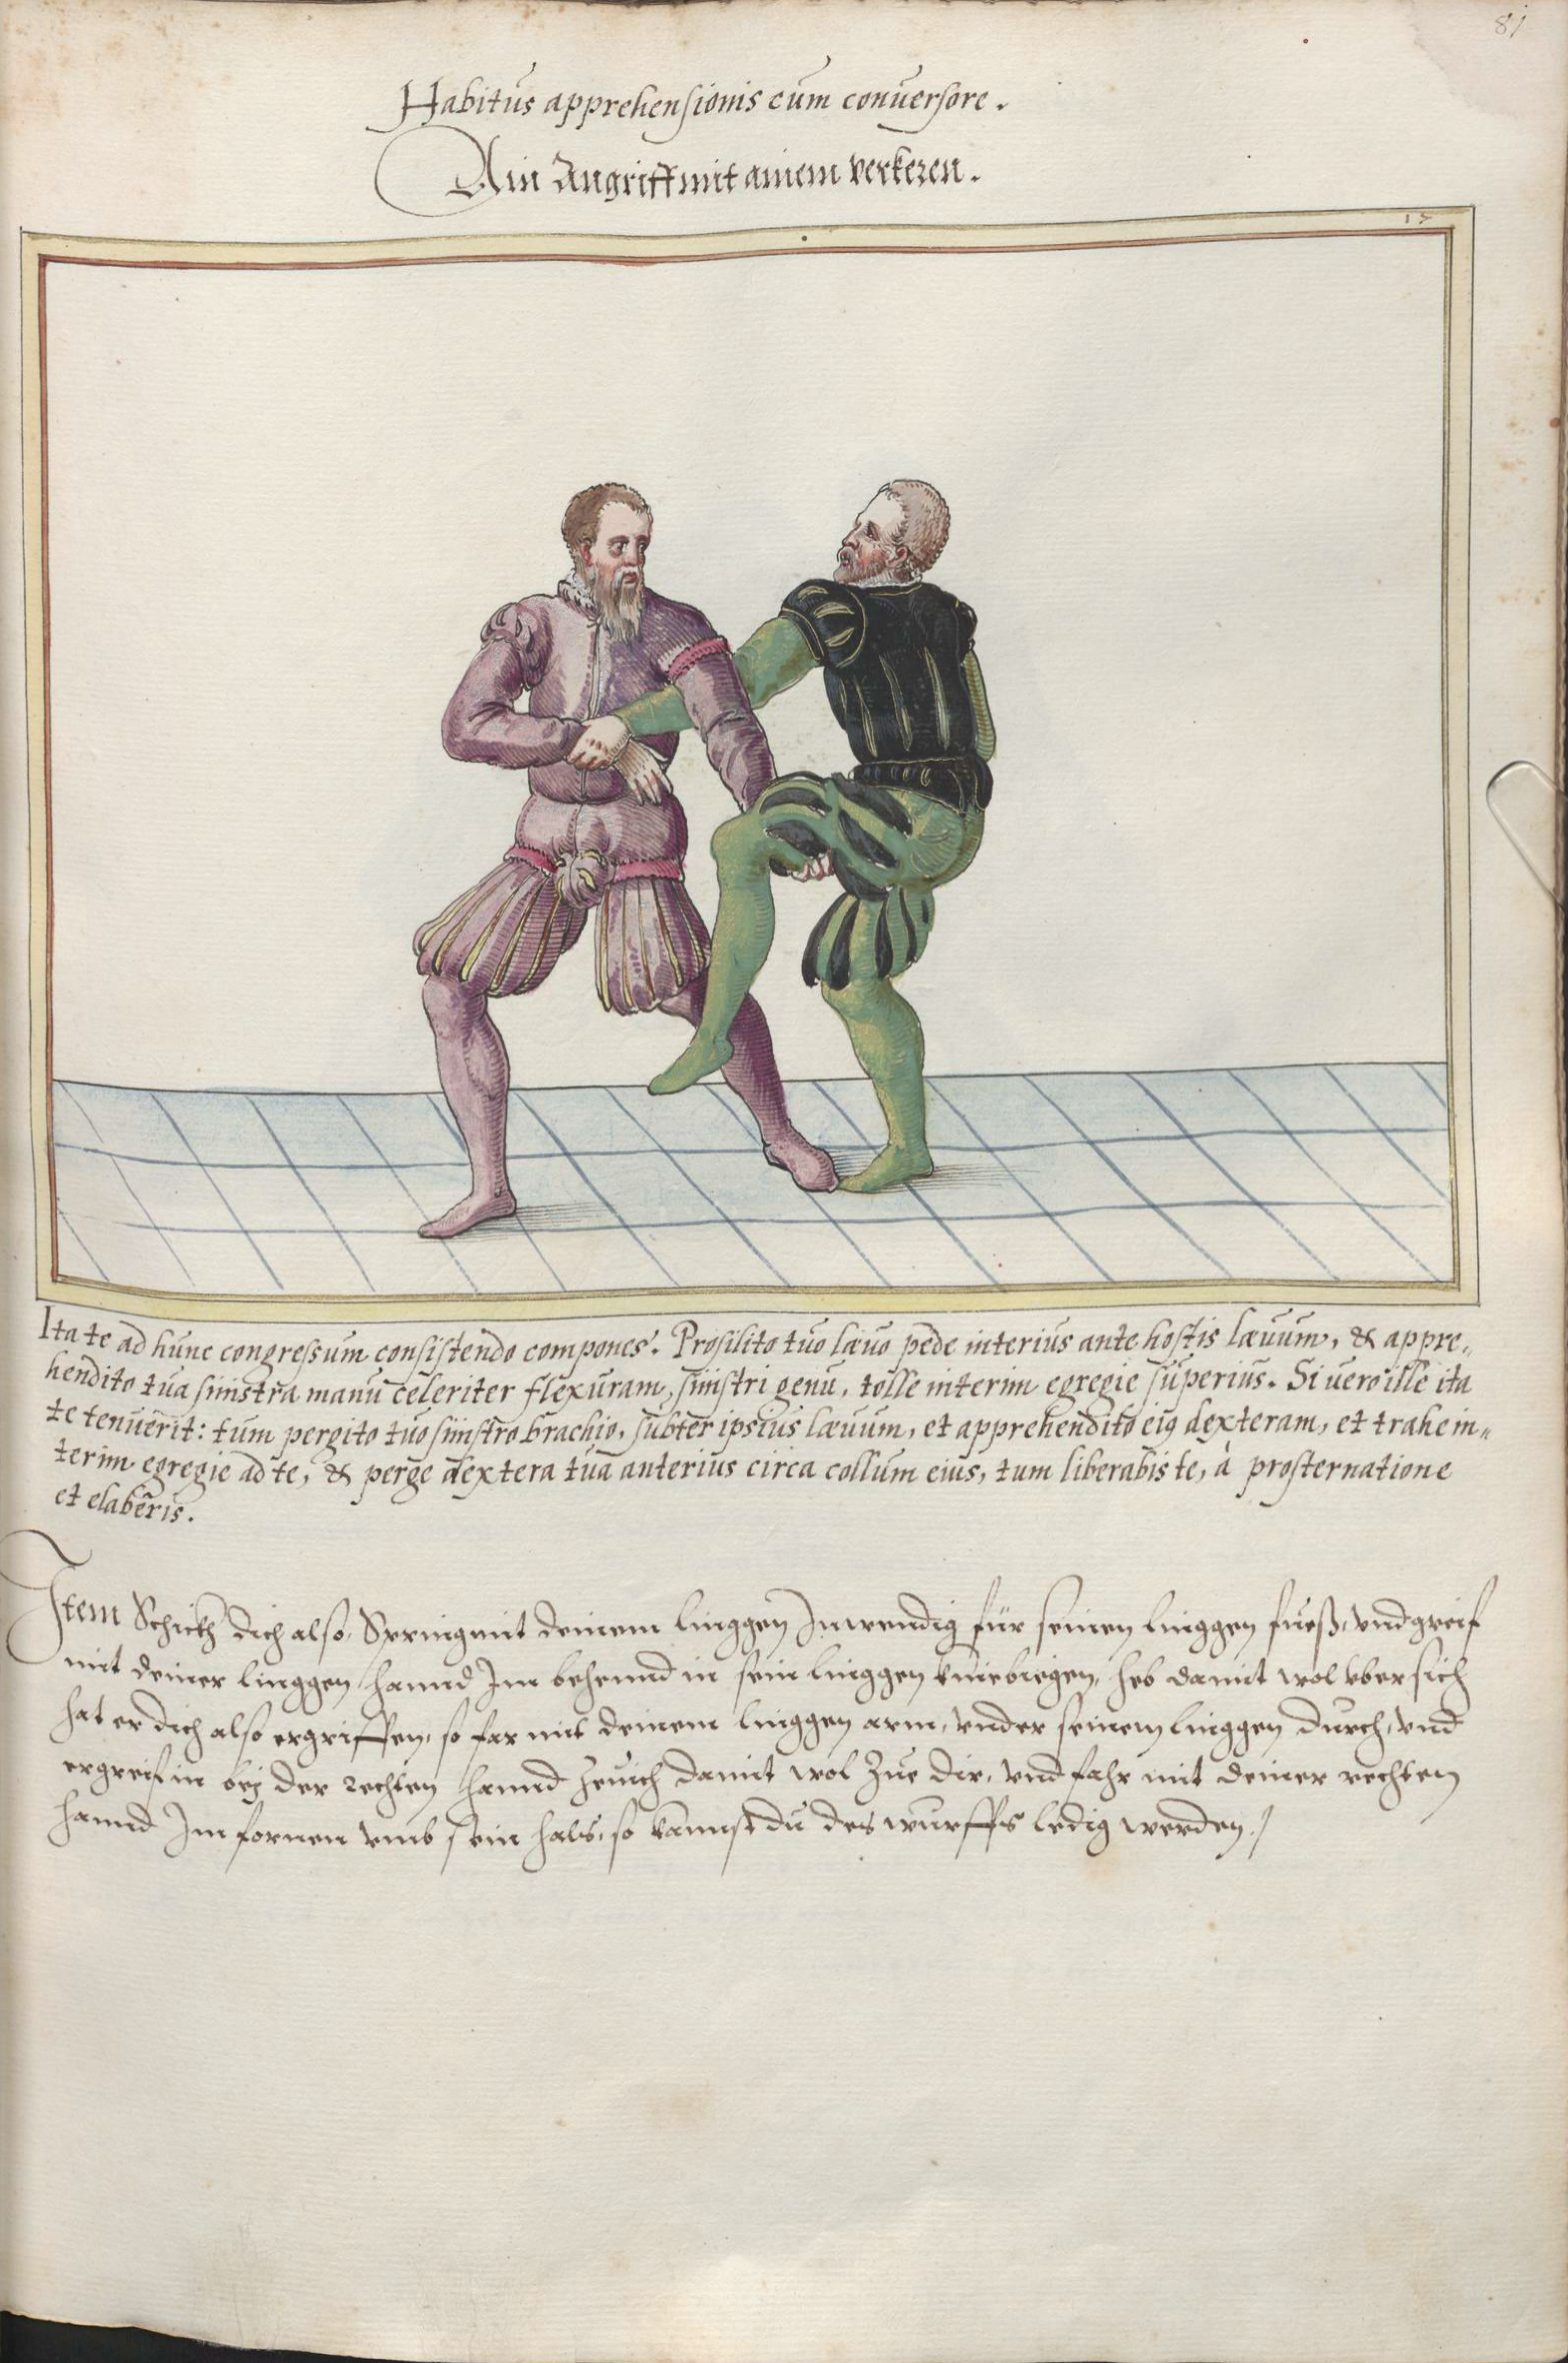 81
Habitus apprehensionis cum conuersore.
Ain Angriff mit ainem verkeren.
17
Ita te ad hunc congressum consistendo compones. Prosilito tuo læuo pede interius ante hostis læuum, & appre„
hendito tua sinistra manu celeriter flexuram, sinistri genu, tolle interim egregie superius. Si uero ille ita
te tenuerit: tum pergito tuo sinistro brachio, subter ipsius læuum, et apprehendito eiꝰ dexteram, et trahe in„
terim egregie ad te, & perge dextera tua anterius circa collum eius, tum liberabis te, à prosternatione
et elaberis.
Item Schickh dich also, Spring mit deinem linggen Inwendig für seinen linggen fueß, vnd greif
mit deiner linggen hannd Im behennd in sein linggen kniebiegen, heb damit wol vber sich
hat er dich also ergriffen, so far mit deinem linggen arm, vnder seinem linggen durch, vnd
ergreif in bej der rechten hannd zeuch damit wol zue dir, vnd fahr mit deiner rechten
hannd Im fornen vmb sein hals, so kannst du des wurffs ledig werden.